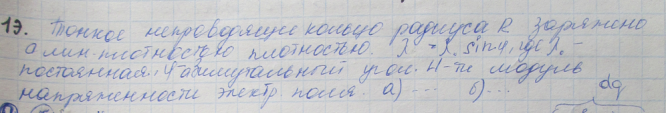 19. Тонкое непроводящее кольцо радиуса R заряжено
с лин. плотностью плотностью. λ = λ₀ sin φ, где λ₀ -
постоянная, φ азимутальный угол. Н-ти модуль
напряженности электр. поля. а) ... б) ...
dq